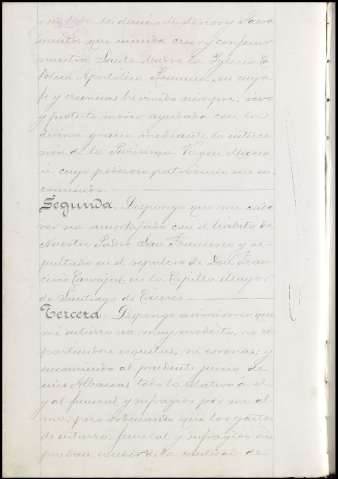 y demás Misterios y Sacra
mentos que manda creer y confesar
nuestra Santa Madre la Iglesia Ca
tólica Apostólica Romana en cuya
fe y creencias he vivido siempre, vivo
y protesto morir ayudada con la
divina gracia mediante la interce
sión de la Santísima Virgen María
á cuyo poderoso patrocinio me en
comiendo.
Segunda. Dispongo que mi cadá
ver sea amortajado con el hábito de
Nuestro Padre San Francisco y se
pultado en el sepulcro de Don Fran
cisco Carvajal, en la Capilla Mayor
de Santiago de Cáceres.
Tercera. Dispongo asimismo que
mi entierro sea muy modesto, no se
repartiendo esquelas, ni coronas; y
encomiendo al prudente juicio de
mis Albaceas todo lo relativo á él
y al funeral y sufragios por mi al
ma; pero ordenando que los gastos
de entierro, funeral y sufragios no
puedan exceder de la cantidad de